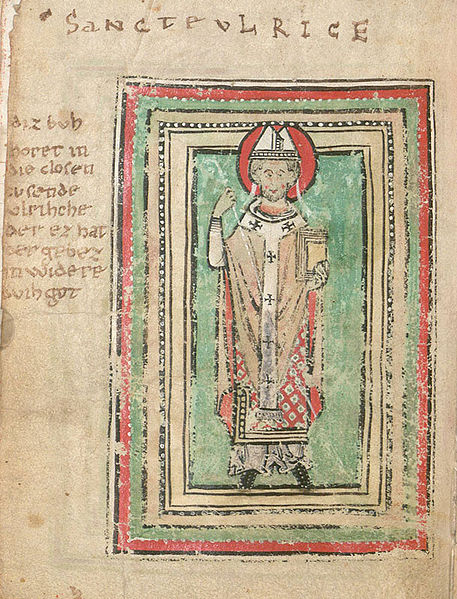 SANCTE ULRICE
diz buh
horet in
die closen
zu sende
ulrihche
der ez hat
der gebez
in widere